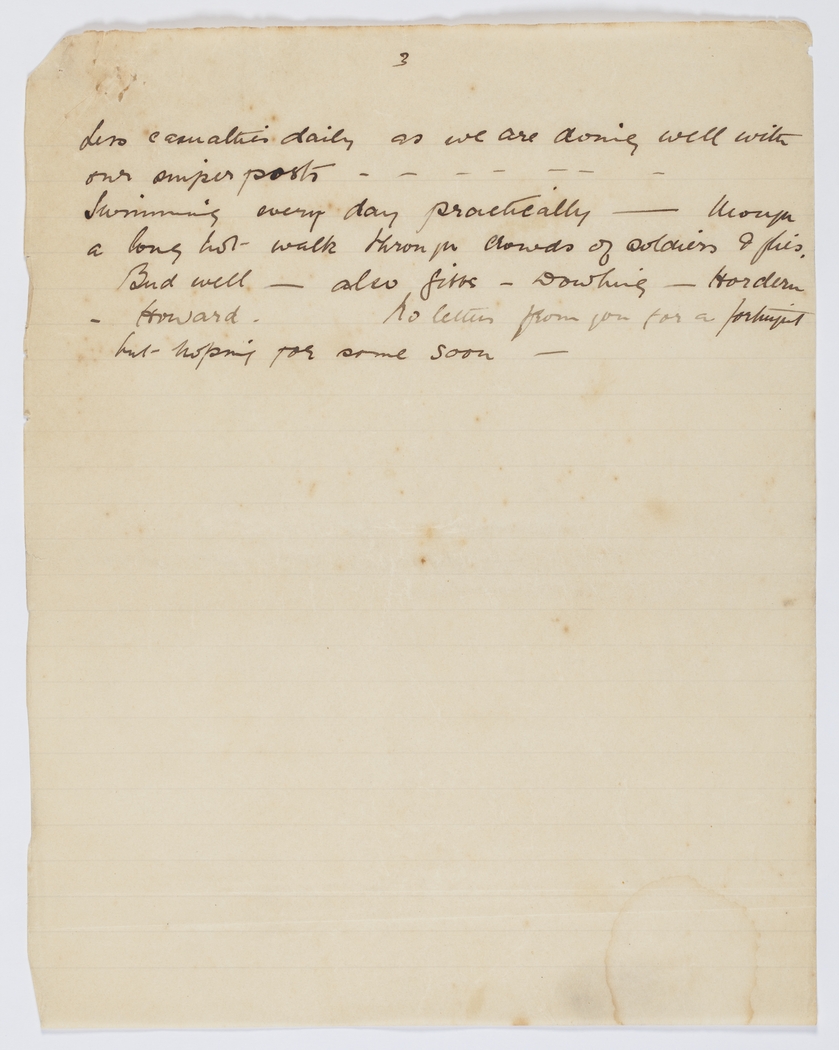 3
Less casualties daily as we are doing well with
our sniper posts - - - - - - -
Swimming every day practically — though
a long hot walk through crowds of soldiers & flies.
Bud well — also Gibbs - Dowling — Hordern
- Howard. No letters from you for a fortnight
but hoping for some soon —